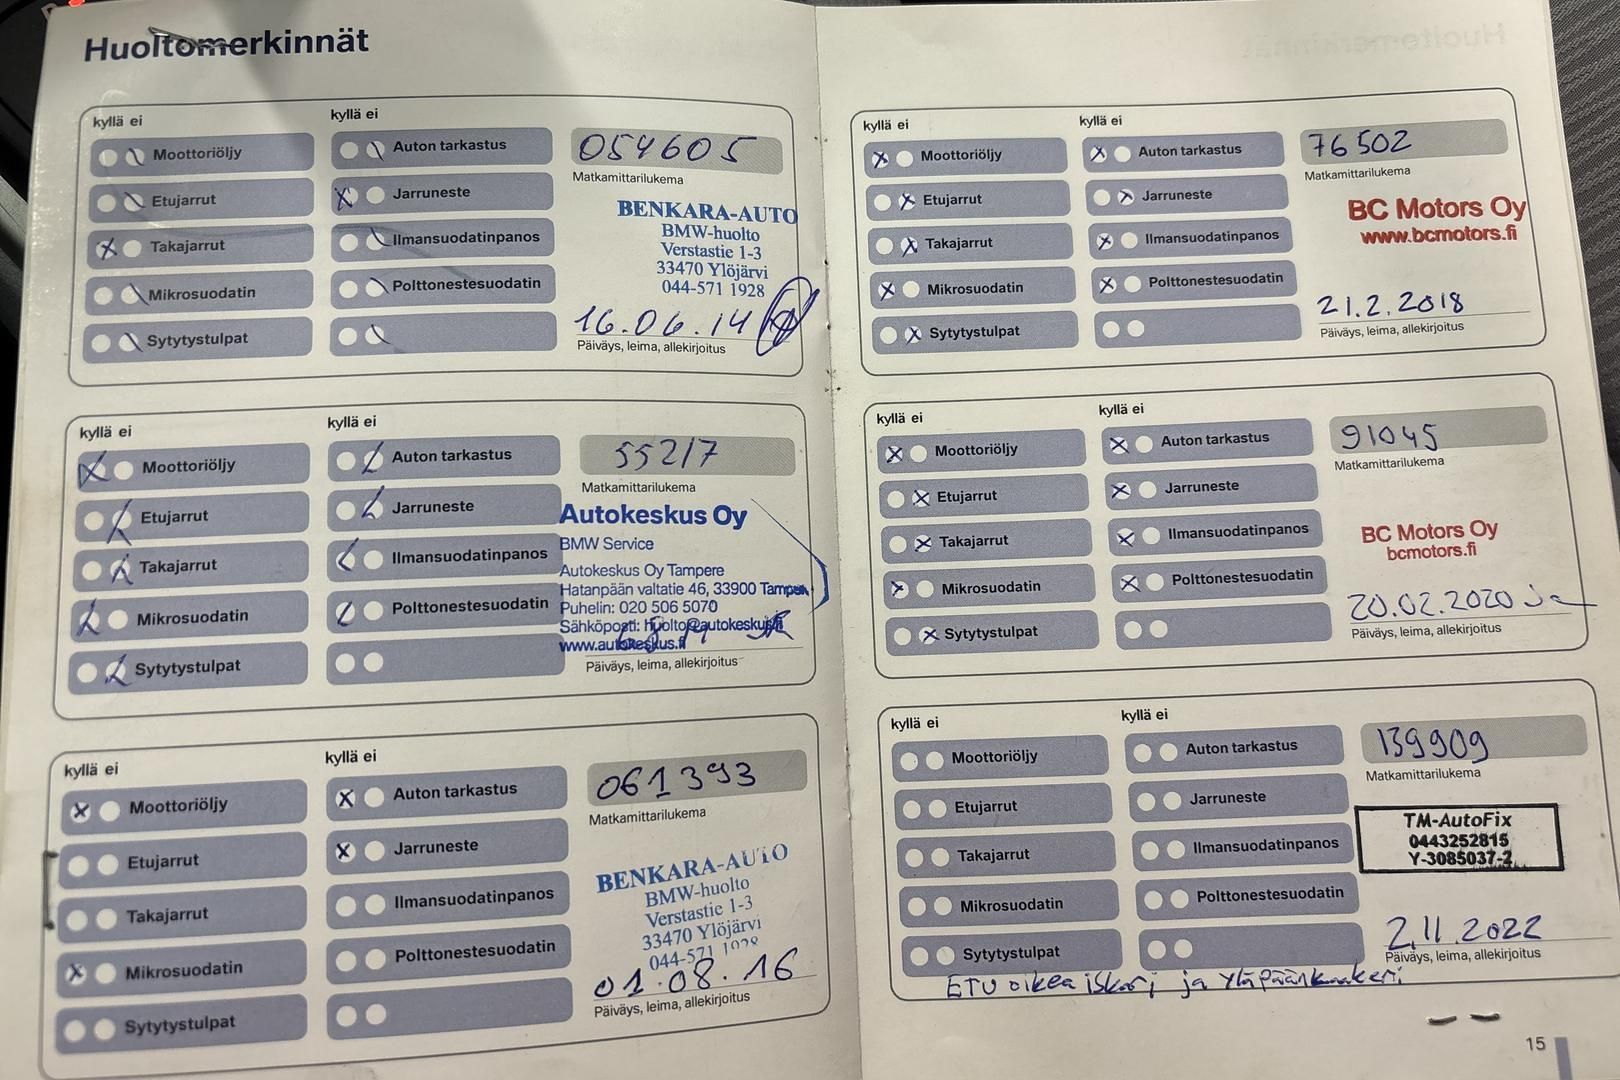 Huoltomerkinnät
kyllä ei
kyllä ei
Moottoriöljy
Auton tarkastus
054605
Matkamittarilukema
Etujarrut
Jarruneste
BENKARA-AUTO
BMW-huolto
Takajarrut
Ilmansuodatinpanos
Verstastie 1-3
33470 Ylöjärvi
Mikrosuodatin
Polttonestesuodatin
044-571 1928
16.06.14
Sytytystulpat
Päiväys, leima, allekirjoitus
kyllä ei
kyllä ei
Moottoriöljy
Auton tarkastus
55217
Matkamittarilukema
Etujarrut
Jarruneste
Autokeskus Oy
BMW Service
Takajarrut
Ilmansuodatinpanos
Autokeskus Oy Tampere
Hatanpään valtatie 46, 33900 Tampere
Mikrosuodatin
Polttonestesuodatin
Puhelin: 020 506 5070
Sähköposti: huolto@autokeskus.fi
www.autokeskus.fi
Sytytystulpat
Päiväys, leima, allekirjoitus
kyllä ei
kyllä ei
Moottoriöljy
Auton tarkastus
061393
Matkamittarilukema
Etujarrut
Jarruneste
BENKARA-AUTO
BMW-huolto
Takajarrut
Ilmansuodatinpanos
Verstastie 1-3
33470 Ylöjärvi
Mikrosuodatin
Polttonestesuodatin
044-571 1928
01.08.16
Sytytystulpat
Päiväys, leima, allekirjoitus
kyllä ei
kyllä ei
Moottoriöljy
Auton tarkastus
76502
Matkamittarilukema
Etujarrut
Jarruneste
BC Motors Oy
www.bcmotors.fi
Takajarrut
Ilmansuodatinpanos
Mikrosuodatin
Polttonestesuodatin
21.2.2018
Sytytystulpat
Päiväys, leima, allekirjoitus
kyllä ei
kyllä ei
Moottoriöljy
Auton tarkastus
91045
Matkamittarilukema
Etujarrut
Jarruneste
Takajarrut
Ilmansuodatinpanos
BC Motors Oy
bcmotors.fi
Mikrosuodatin
Polttonestesuodatin
20.02.2020
Sytytystulpat
Päiväys, leima, allekirjoitus
kyllä ei
kyllä ei
Moottoriöljy
Auton tarkastus
139909
Matkamittarilukema
Etujarrut
Jarruneste
TM-AutoFix
0443252815
Y-3085037-2
Takajarrut
Ilmansuodatinpanos
Mikrosuodatin
Polttonestesuodatin
2.11.2022
Sytytystulpat
Päiväys, leima, allekirjoitus
ETU oikea iskari ja
15